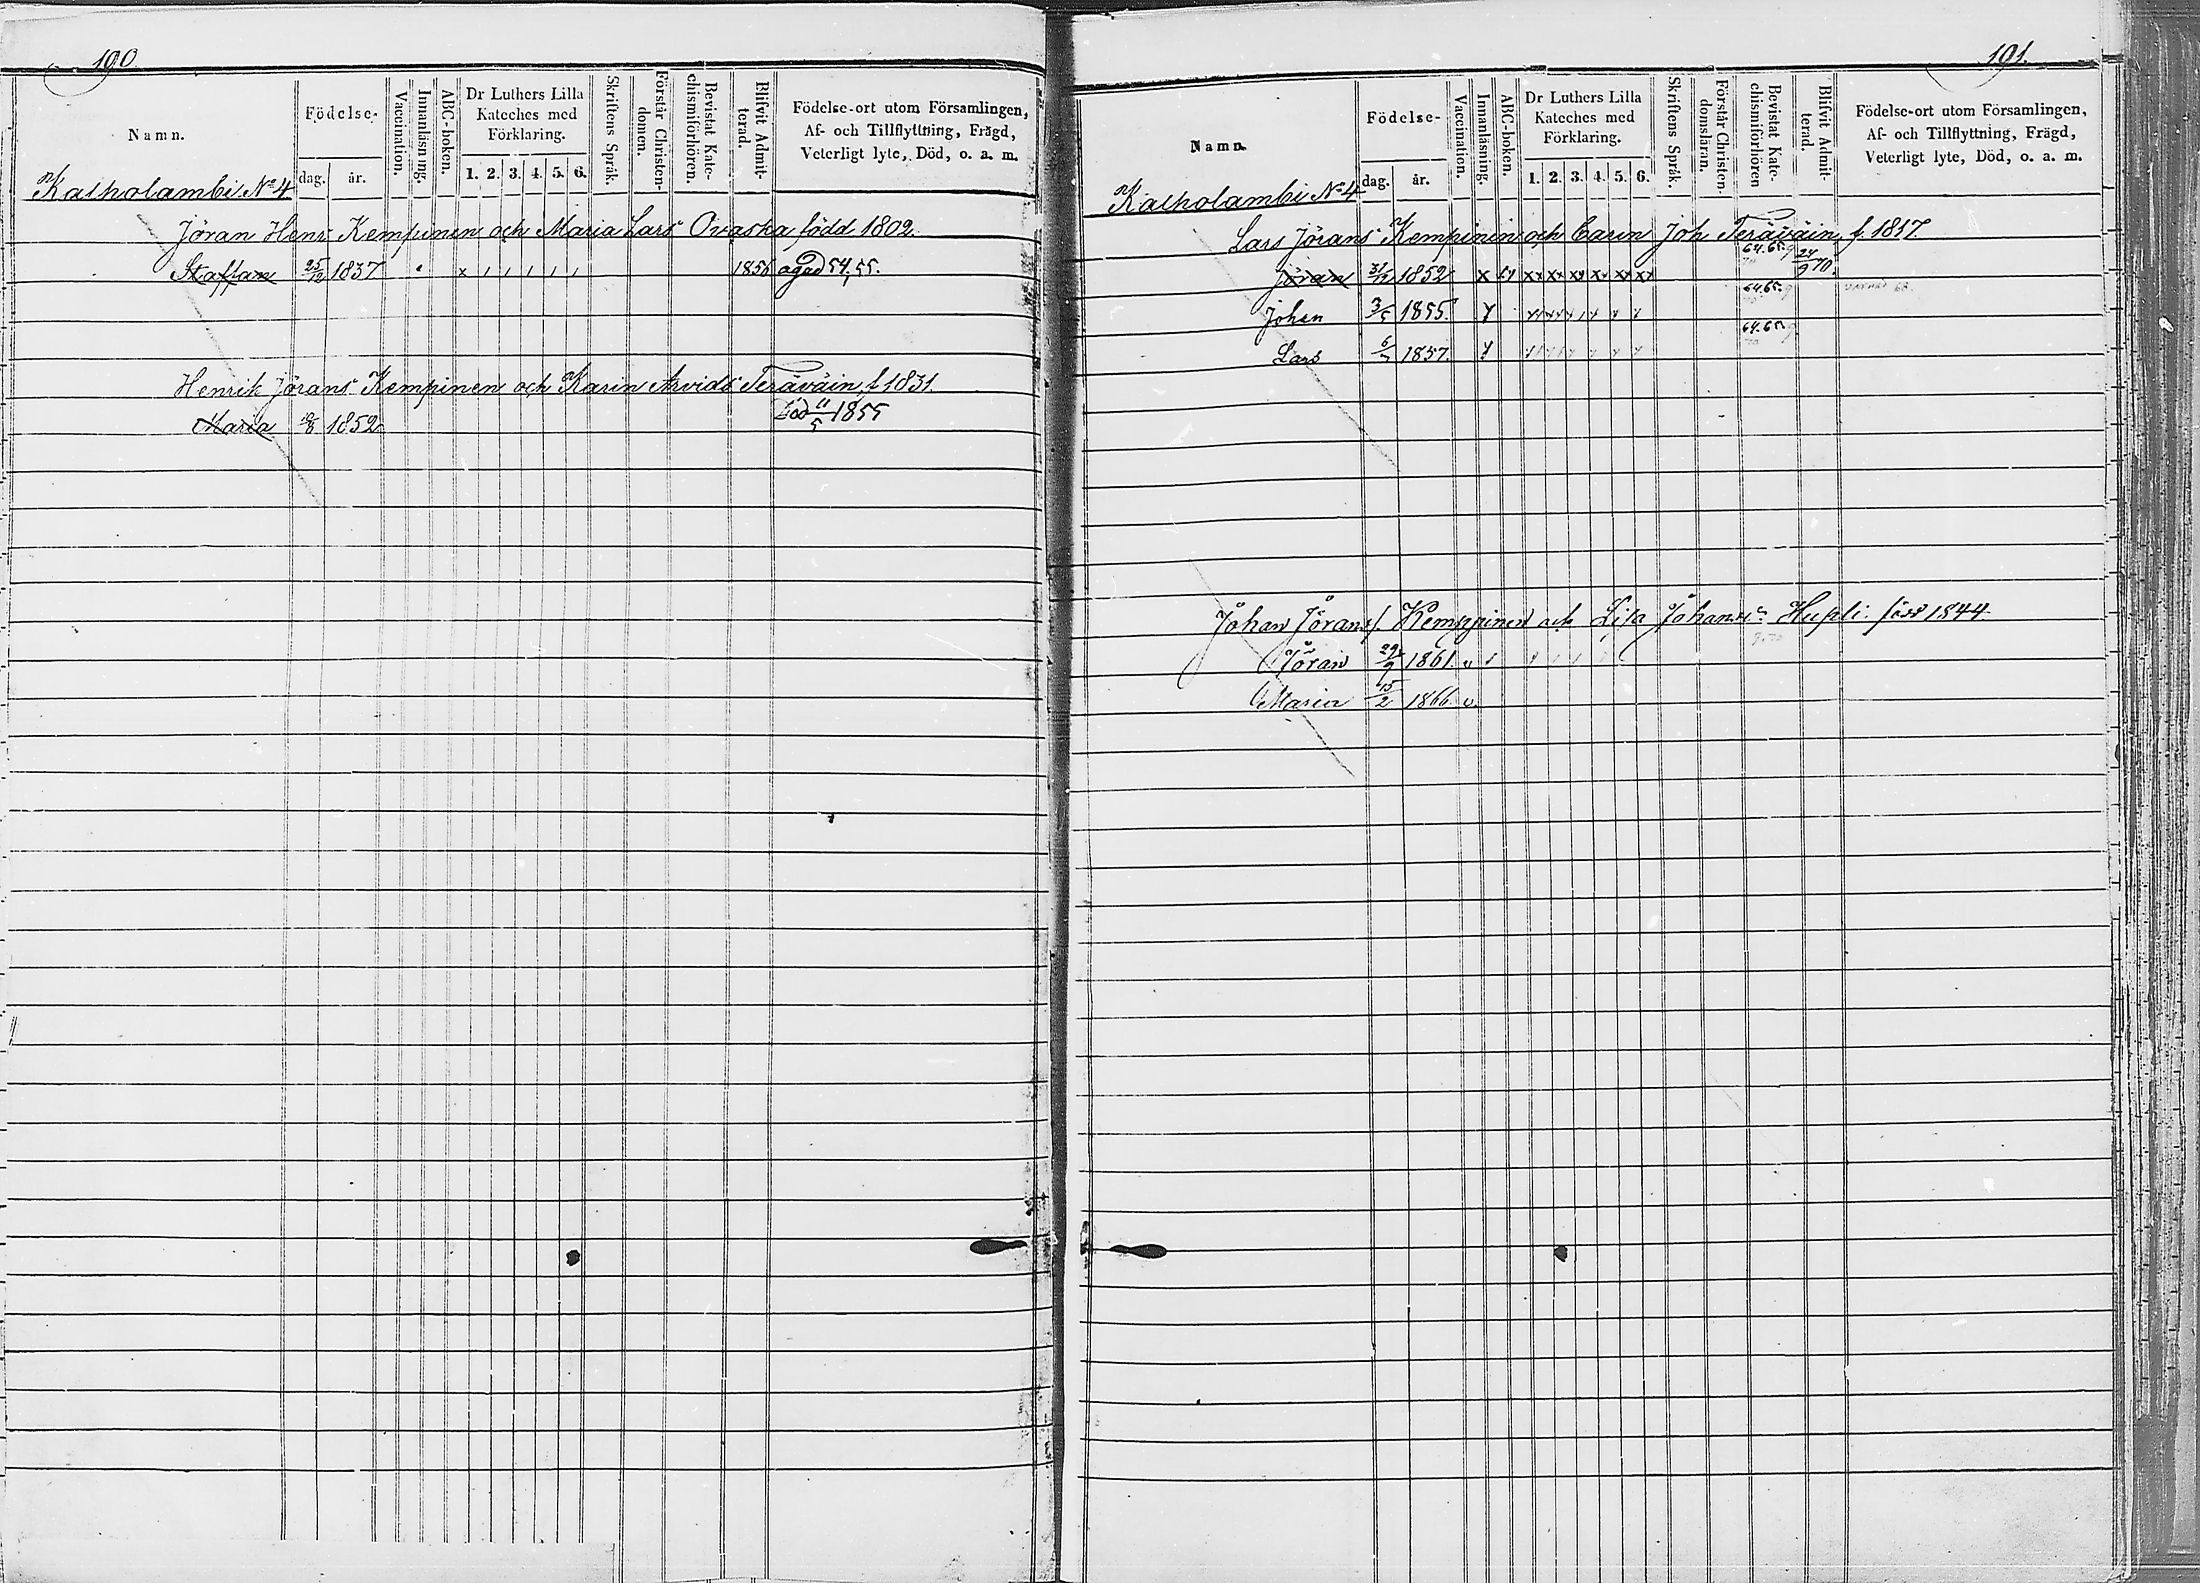 190.
Namn.
Födelse-
dag. år.
Vaccination.
Innanläsning.
ABC-boken.
Dr Luthers Lilla Kateches med Förklaring.
1. 2. 3. 4. 5. 6.
Skriftens Språk.
Förstår Christendomen.
Bevistat Katechismiförhören.
Blifvit Admitterad.
Födelse-ort utom Församlingen,
Af- och Tillflyttning, Frägd,
Veterligt lyte, Död, o. a. m.
Kalholambi No 4
Jöran Henrs Kempinen och Maria Lars Ovaska född 1802.
Staffan 25/12 1837 1856 agad 54, 55.
Henrik Jörans Kempinen och Karin Arvids Teräväin f 1831.
Maria 1852 Död 11/5 1855
191.
Namn.
Födelse-
dag. år.
Vaccination.
Innanläsning.
ABC-boken.
Dr Luthers Lilla Kateches med Förklaring.
1. 2. 3. 4. 5. 6.
Skriftens Språk.
Förstår Christendomsläran.
Bevistat Katechismiförhören
Blifvit Admitterad.
Födelse-ort utom Församlingen,
Af- och Tillflyttning, Frägd,
Veterligt lyte, Död, o. a. m.
Kalholambi No 4
Lars Jörans Kempinin och Carin Joh Teräväin f. 1817
Jöran 31/12 1852 x xx xx xx xx xx xx 64.65. 24/9 70.
Johan 3/5 1855. 64.65.
Lars 1857. 64.65
Johan Jöransf. Kemppinen och Lisa Johans Hupli född 1844
Jöran 29/9 1861.
Maria 15/2 1866